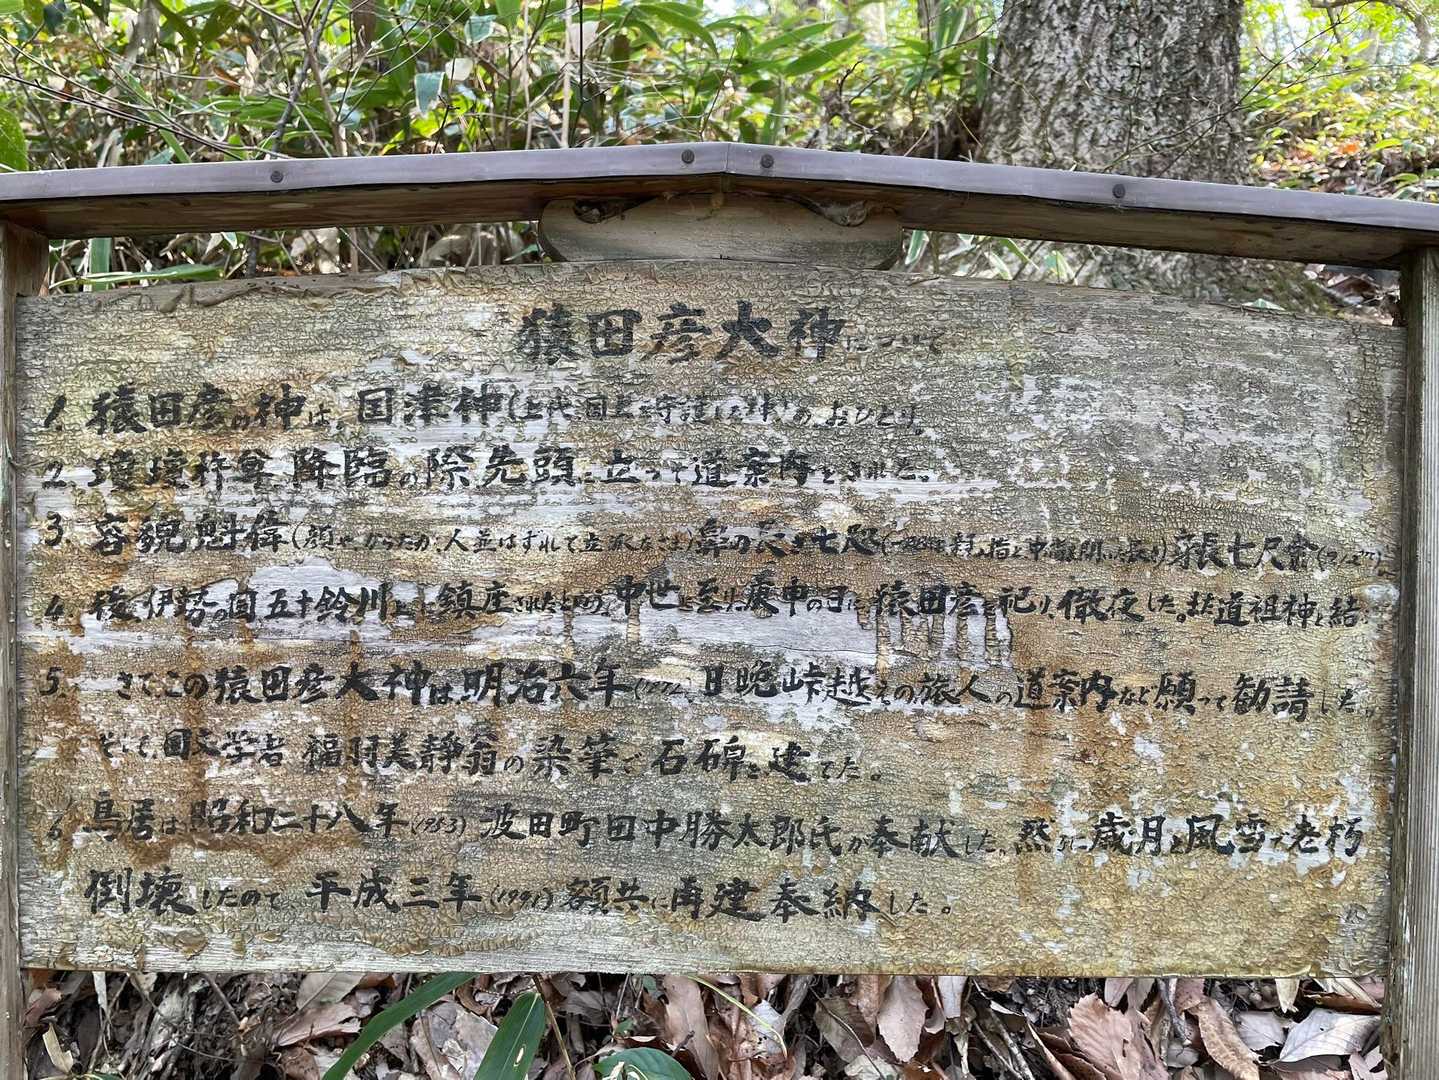 猿田彦大神について
1. 猿田彦の神は、国津神(上代 国土を守護した神)の、おひとり。
2. 瓊瓊杵尊 降臨の際先頭に立って道案内をされた。
3. 容貌魁偉(顔や、からだが、人並はずれて立派なさま)鼻の長さ七咫( 親指と中指を間 長さ)身長七尺余
4. 後、伊勢の国五十鈴川上に鎮座されたという。中世に至り、庚申の日に猿田彦を祀り、徹夜した。また道祖神と結
5. さて、この猿田彦大神は、明治六年 、日晩峠越えの旅人の道案内など願って勧請した。
そして、国文学者 福羽美静翁の染筆で 石碑を建てた。
6 鳥居は、昭和二十八年(1953) 波田町田中勝太郎氏が奉献した。然るに歳月と風雪で老朽
倒壊したので、平成三年(1991)額共に再建奉納した。